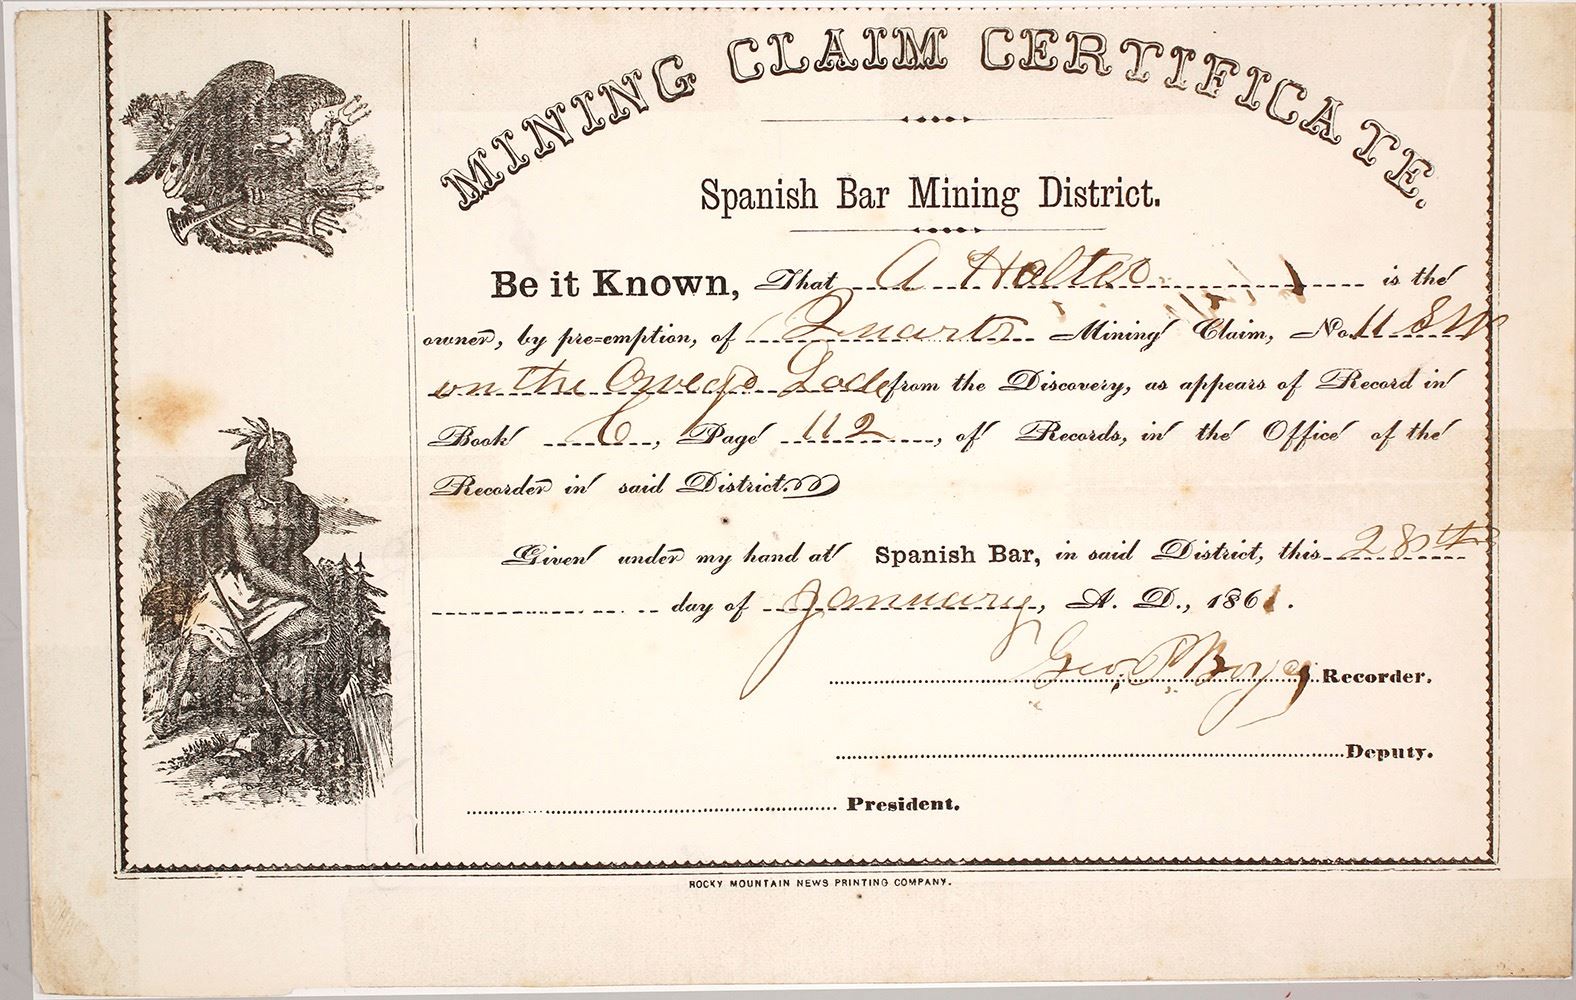 MINING CLAIM CERTIFICATE.
Spanish Bar Mining District.
Be it Known, That A Halted is the
owner, by pre=emption, of Quarts Mining Claim, No. 11 S W
on the Owego Lode from the Discovery, as appears of Record in
Book C, Page 112, of Records, in the Office of the
Recorder in said District.
Given under my hand at Spanish Bar, in said District, this 28th
day of January, A. D., 1861.
Geo. P. Boyg Recorder.
Deputy.
President.
ROCKY MOUNTAIN NEWS PRINTING COMPANY.